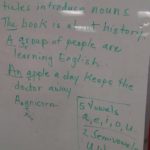 ticles introduce nouns
The book is about history
A group of people are
learning English.
An apple a day keeps the
doctor away
5 Vowels
a, e, i, o, u
2 Semivowels